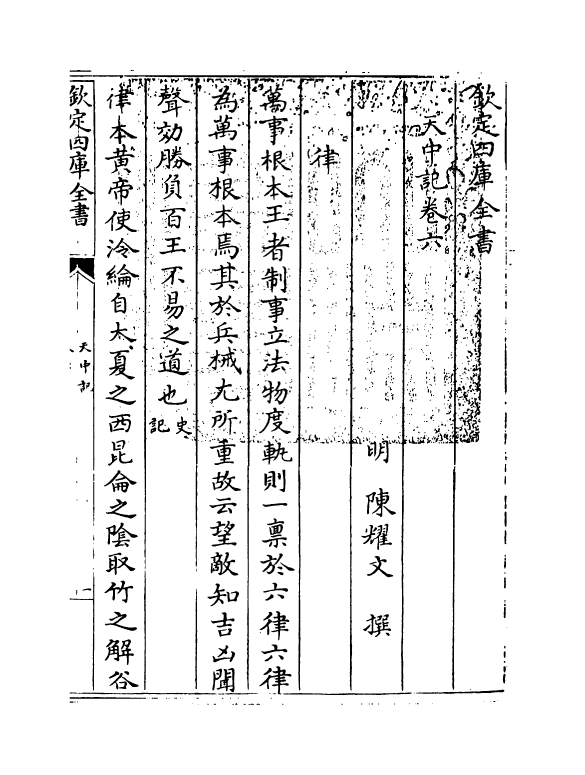 欽定四庫全書
天中記卷六
明 陳耀文 撰
律
萬事根本王者制事立法物度軌則一禀於六律六律
為萬事根本焉其於兵械尤所重故云望敵知吉凶聞
聲効勝負百王不易之道也史記
律本黄帝使泠綸自大夏之西昆侖之陰取竹之解谷
欽定四庫全書
天中記